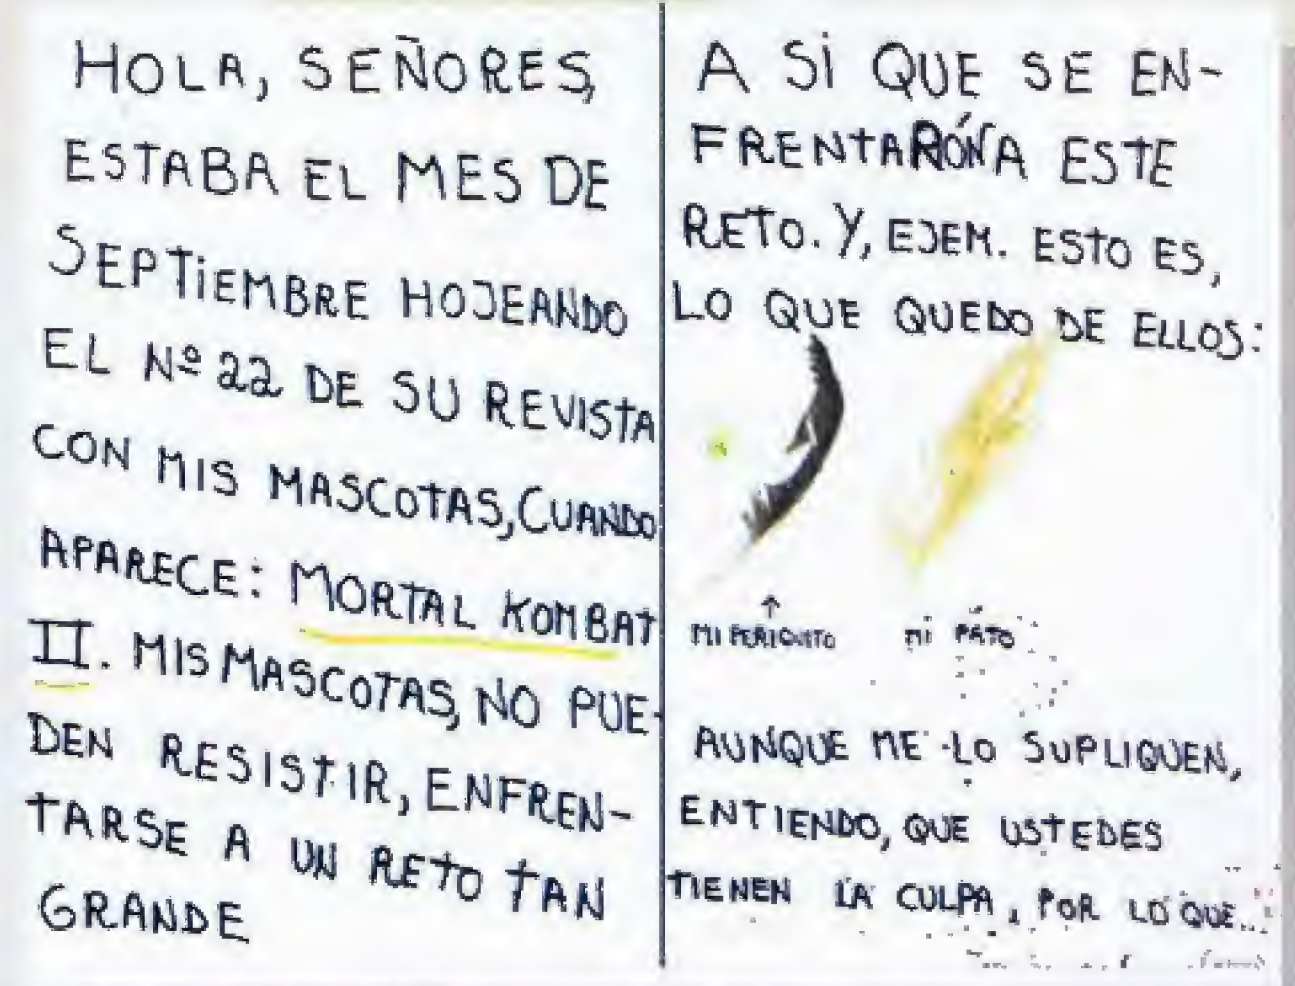 HOLA, SEÑORES,
ESTABA EL MES DE
SEPTIEMBRE HOJEANDO
EL Nº 22 DE SU REVISTA
CON MIS MASCOTAS, CUANDO
APARECE: MORTAL KOMBAT
II. MIS MASCOTAS, NO PUE-
DEN RESISTIR, ENFREN-
TARSE A UN RETO TAN
GRANDE
A SI QUE SE EN-
FRENTARÓN A ESTE
RETO. Y, EJEM. ESTO ES,
LO QUE QUEDO DE ELLOS:
MI PERIQUITO
MI PATO
AUNQUE ME LO SUPLIQUEN,
ENTIENDO, QUE USTEDES
TIENEN LA CULPA, POR LO QUE...